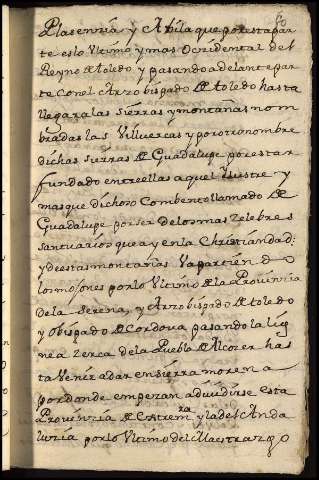 60
Plasenzia y Abila que por esta par
te es lo Vltimo y mas Oczidental del
Reyno de toledo y pasando adelante par
te con el Arzobispado de toledo hasta
llegar a las sierras y montañas nom
bradas las Villuercas y por otro nombre
dichas sierras de Guadalupe por estar
fundado entre ellas aquel Illustre y
mas que dichoso Combento llamado de
Guadalupe por ser de los mas zelebres
santuarios que ay en la Christiandad:
y de estas montañas va partiendo
los mojones por lo Vltimo de la Provinzia
de la serena, y Arzobispado de toledo
y Obispado de Cordova pasando la lig
nea zerca de la Puebla de Alcozer has
ta Venir a dar en sierra morena
por donde empezan a diuidirse esta
Provinzia de Estremra y la del Anda
luzia por lo Vltimo del Maestrazgo